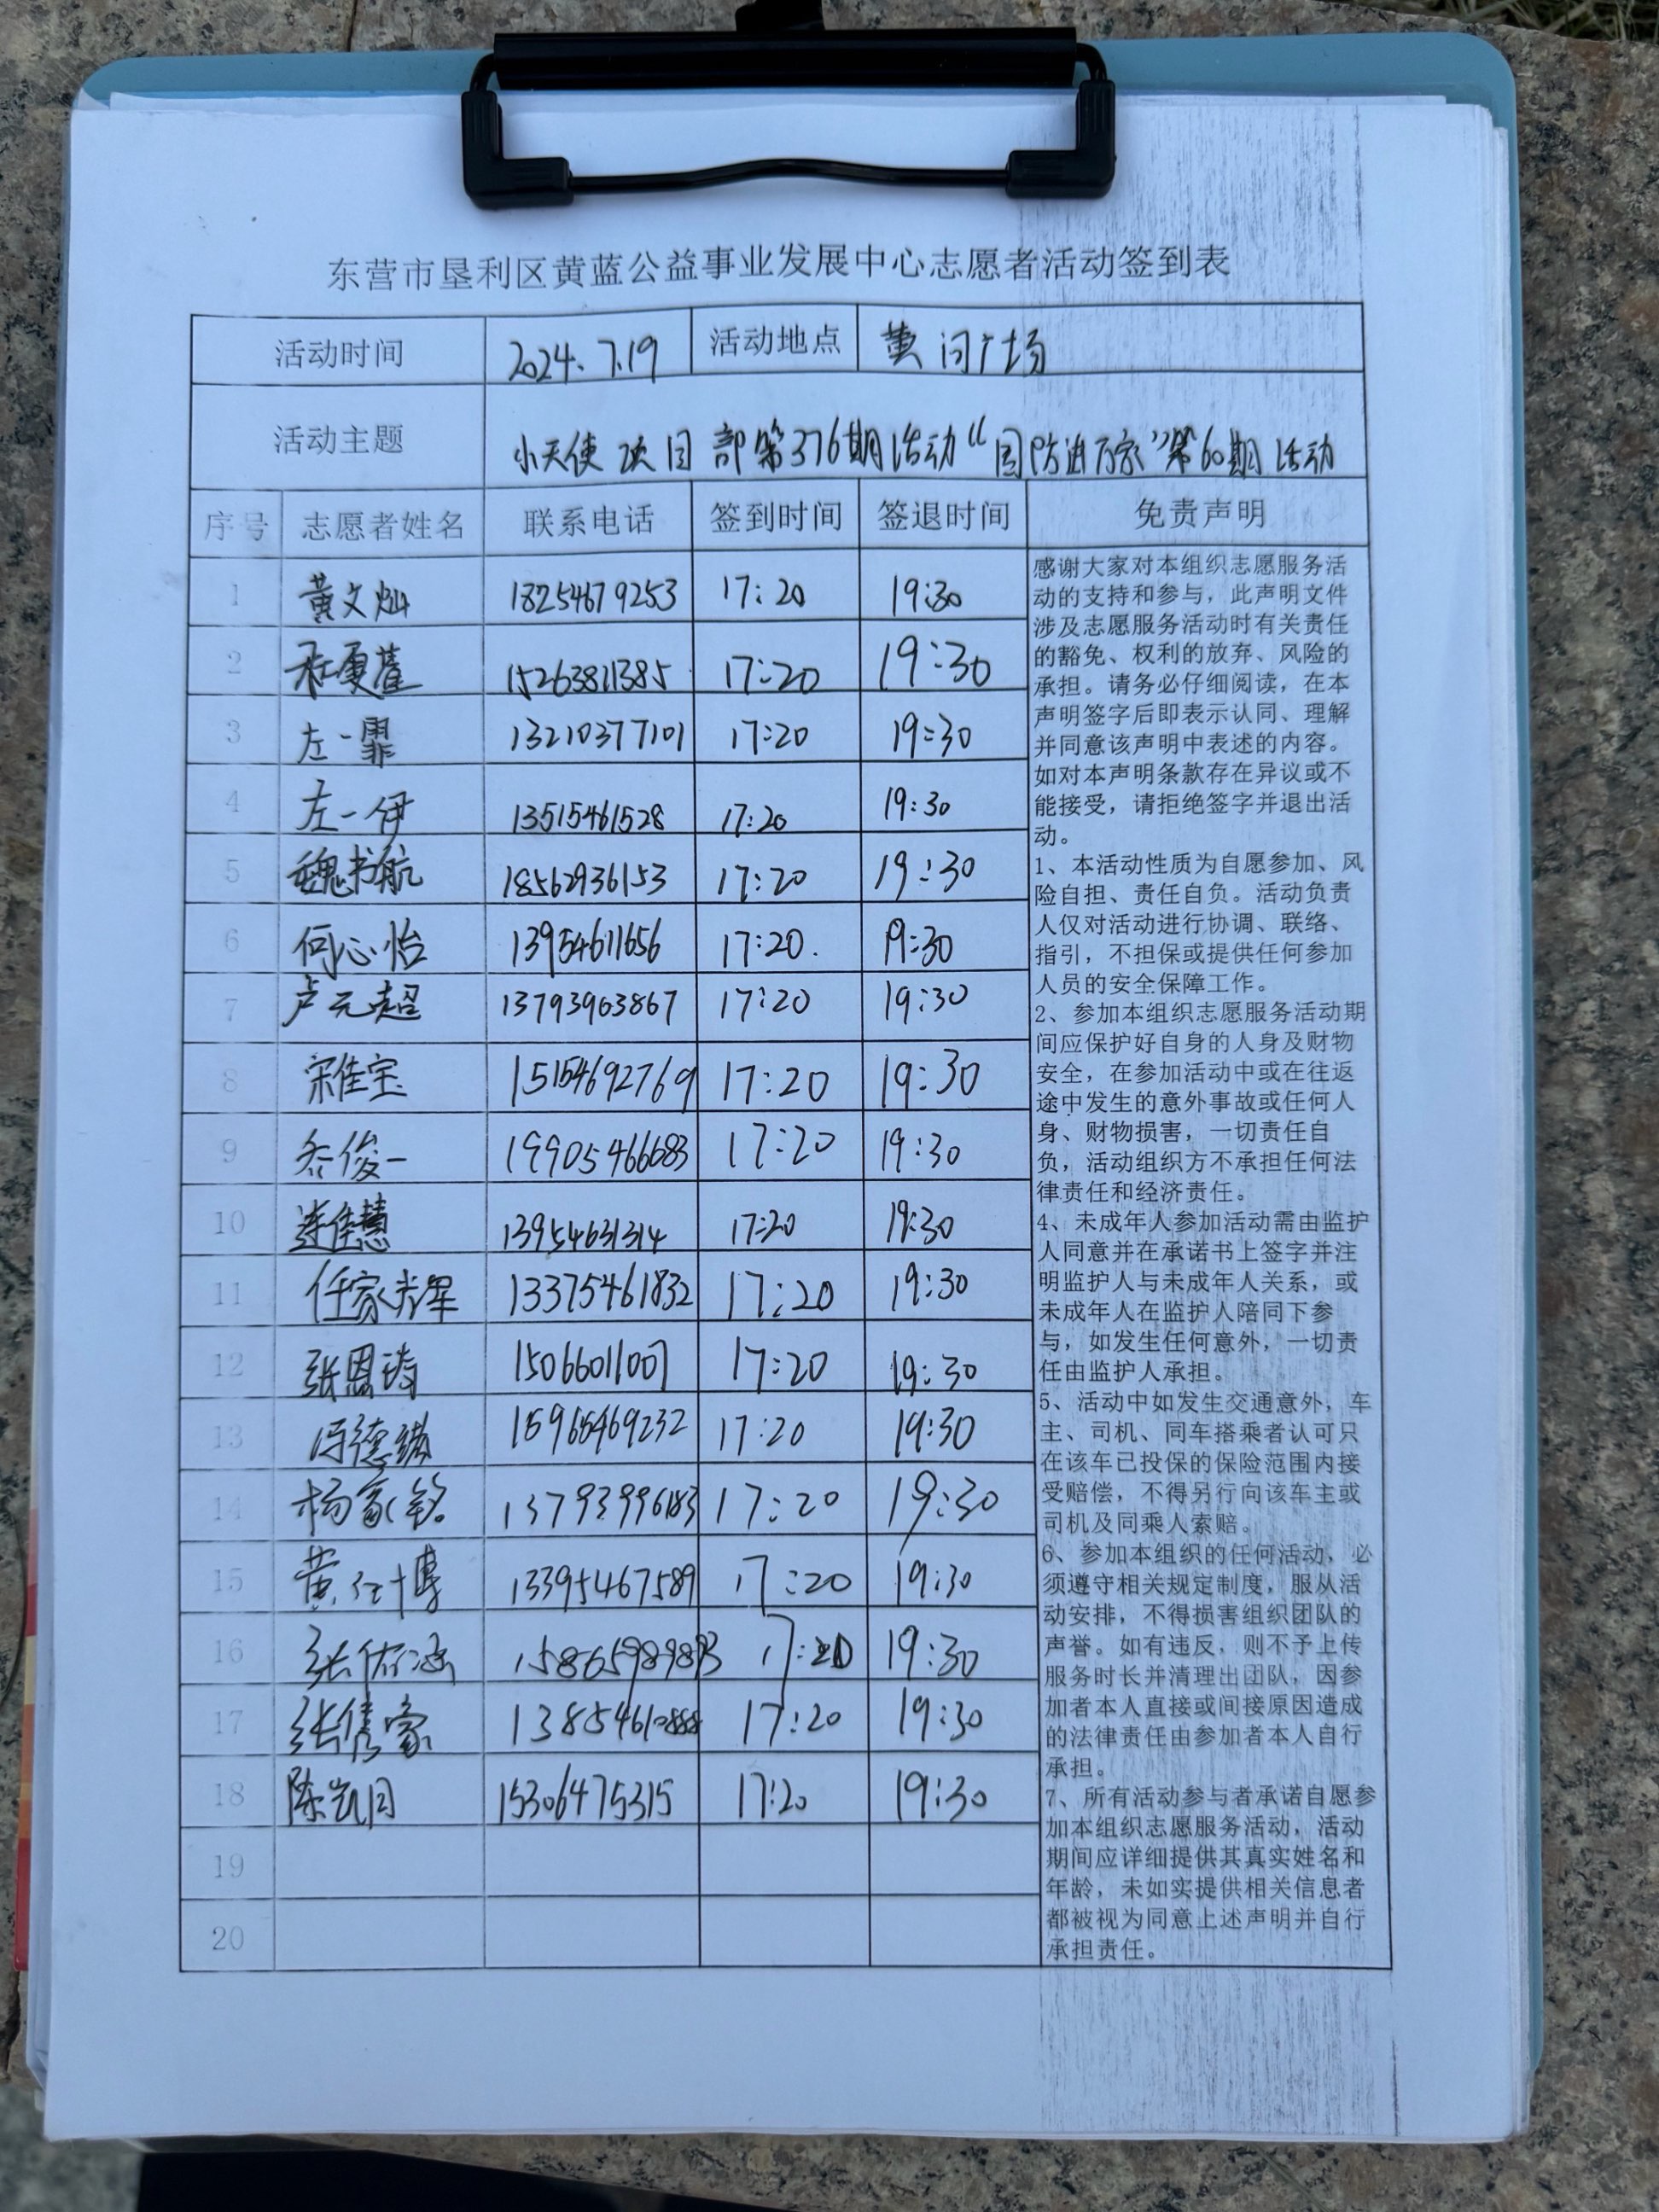 东营市垦利区黄蓝公益事业发展中心志愿者活动签到表
活动时间 2024.7.19 活动地点 黄河广场
活动主题 小天使项目部第376期活动“国防进万家”第60期活动
序号 志愿者姓名 联系电话 签到时间 签退时间 免责声明
1 黄文灿 18254679253 17:20 19:30
2 15263811385 17:20 19:30
3 左一霏 13210377101 17:20 19:30
4 左一伊 13515461528 17:20 19:30
5 魏书航 18562936153 17:20 19:30
6 何心怡 13954611656 17:20 19:30
7 卢元超 13793963867 17:20 19:30
8 宋佳宝 15154692769 17:20 19:30
9 乔俊一 19905466683 17:20 19:30
10 连佳慧 13954631314 17:20 19:30
11 任家辉 13375461832 17:20 19:30
12 张恩 15066011007 17:20 19:30
13 德 15965469232 17:20 19:30
14 杨家铭 13793996183 17:20 19:30
15 黄 博 13395467589 17:20 19:30
16 张佑涵 17:20 19:30
17 张隽豪 17:20 19:30
18 陈凯月 15306475315 17:20 19:30
19
20
感谢大家对本组织志愿服务活
动的支持和参与，此声明文件
涉及志愿服务活动时有关责任
的豁免、权利的放弃、风险的
承担。请务必仔细阅读，在本
声明签字后即表示认同、理解
并同意该声明中表述的内容。
如对本声明条款存在异议或不
能接受，请拒绝签字并退出活
动。
1、本活动性质为自愿参加、风
险自担、责任自负。活动负责
人仅对活动进行协调、联络、
指引，不担保或提供任何参加
人员的安全保障工作。
2、参加本组织志愿服务活动期
间应保护好自身的人身及财物
安全，在参加活动中或在往返
途中发生的意外事故或任何人
身、财物损害，一切责任自
负，活动组织方不承担任何法
律责任和经济责任。
4、未成年人参加活动需由监护
人同意并在承诺书上签字并注
明监护人与未成年人关系，或
未成年人在监护人陪同下参
与，如发生任何意外，一切责
任由监护人承担。
5、活动中如发生交通意外，车
主、司机、同车搭乘者认可只
在该车已投保的保险范围内接
受赔偿，不得另行向该车主或
司机及同乘人索赔。
6、参加本组织的任何活动，必
须遵守相关规定制度，服从活
动安排，不得损害组织团队的
声誉。如有违反，则不予上传
服务时长并清理出团队，因参
加者本人直接或间接原因造成
的法律责任由参加者本人自行
承担。
7、所有活动参与者承诺自愿参
加本组织志愿服务活动，活动
期间应详细提供其真实姓名和
年龄，未如实提供相关信息者
都被视为同意上述声明并自行
承担责任。